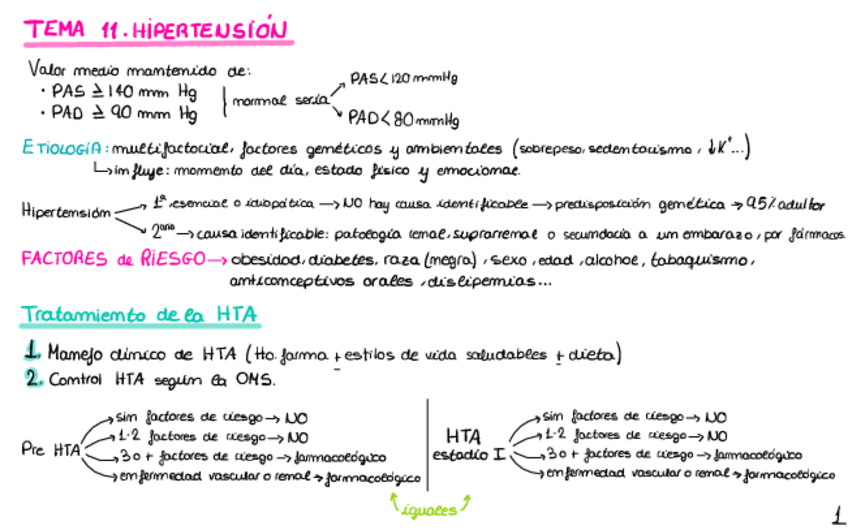 TEMA 11. HIPERTENSIÓN
Valor medio mantenido de:
· PAS ≥ 140 mm Hg
· PAD ≥ 90 mm Hg
normal sería
PAS < 120 mmHg
PAD < 80 mmHg
ETIOLOGÍA: multifactorial, factores genéticos y ambientales (sobrepeso, sedentarismo, ↓K⁺...)
↳ influye: momento del día, estado físico y emocional.
Hipertensión
→ 1ª, esencial o idiopática → NO hay causa identificable → predisposición genética → 95% adultos
→ 2aria → causa identificable: patología renal, suprarrenal o secundaria a un embarazo, por fármacos.
FACTORES de RIESGO → obesidad, diabetes, raza (negra), sexo, edad, alcohol, tabaquismo,
anticonceptivos orales, dislipemias...
Tratamiento de la HTA
1. Manejo clínico de HTA (tto. farma + estilos de vida saludables ± dieta)
2. Control HTA según la OMS.
Pre HTA
→ sin factores de riesgo → NO
→ 1-2 factores de riesgo → NO
→ 3 o + factores de riesgo → farmacológico
→ enfermedad vascular o renal → farmacológico
HTA
estadío I
→ sin factores de riesgo → NO
→ 1-2 factores de riesgo → NO
→ 3 o + factores de riesgo → farmacológico
→ enfermedad vascular o renal → farmacológico
iguales
1